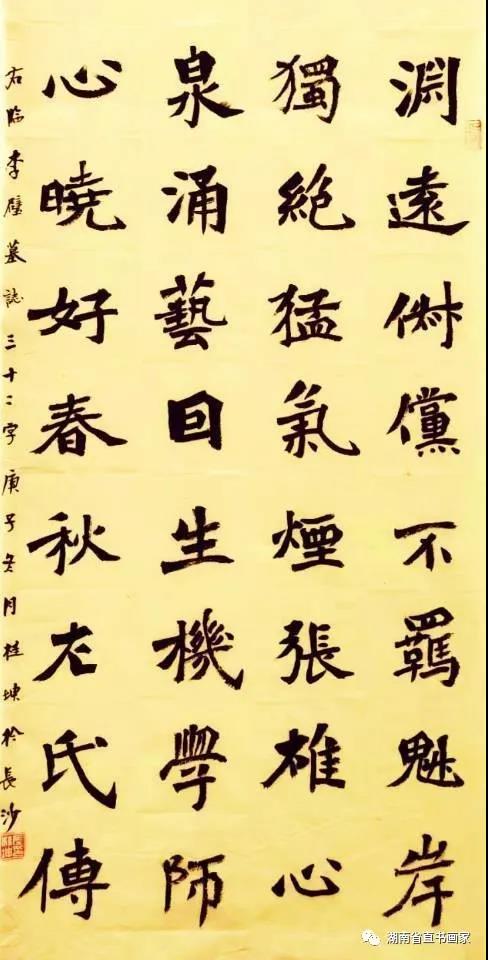 淵遠俶儻不羈魁岸
獨絶猛氣煙張雄心
泉涌藝囙生機學師
心曉好春秋左氏傳
右臨李璧墓誌三十二字庚子冬月桂坤於長沙
湖南省直书画家